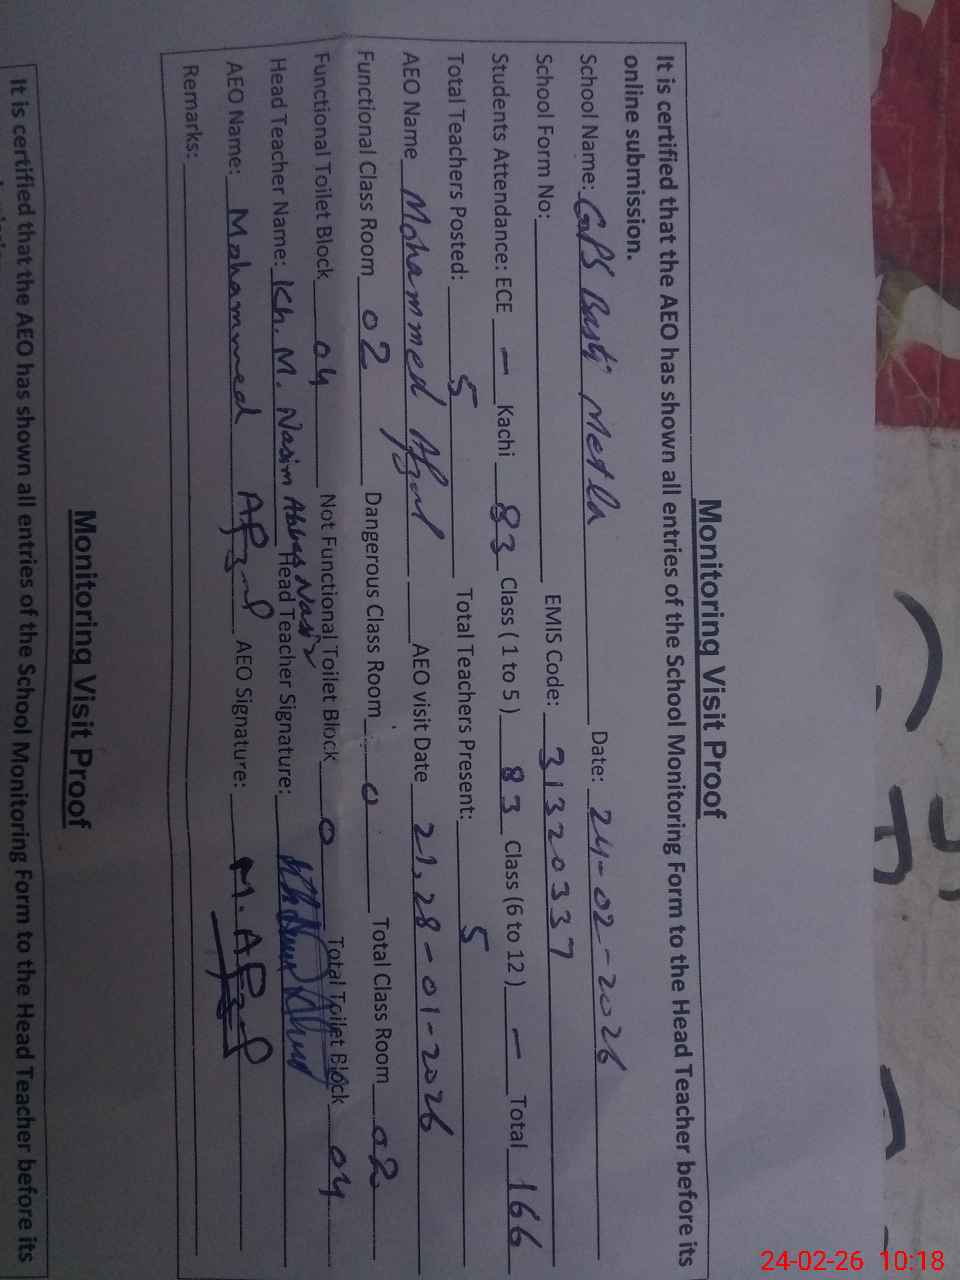 Monitoring Visit Proof
It is certified that the AEO has shown all entries of the School Monitoring Form to the Head Teacher before its
online submission.
School Name: GPS Basti Metla Date: 24-02-2026
School Form No: EMIS Code: 31320337
Students Attendance: ECE — Kachi 83 Class ( 1 to 5 ) 83 Class (6 to 12 ) — Total 166
Total Teachers Posted: 5 Total Teachers Present: 5
AEO Name Mohammed Afzal AEO visit Date 21, 28-01-2026
Functional Class Room 02 Dangerous Class Room 0 Total Class Room 02
Functional Toilet Block 04 Not Functional Toilet Block 0 Total Toilet Block 04
Head Teacher Name: Kh. M. Nasim Abbas Nasir Head Teacher Signature:
AEO Name: Mohammed Afzal AEO Signature: M. Afzal
Remarks:
Monitoring Visit Proof
It is certified that the AEO has shown all entries of the School Monitoring Form to the Head Teacher before its
24-02-26 10:18